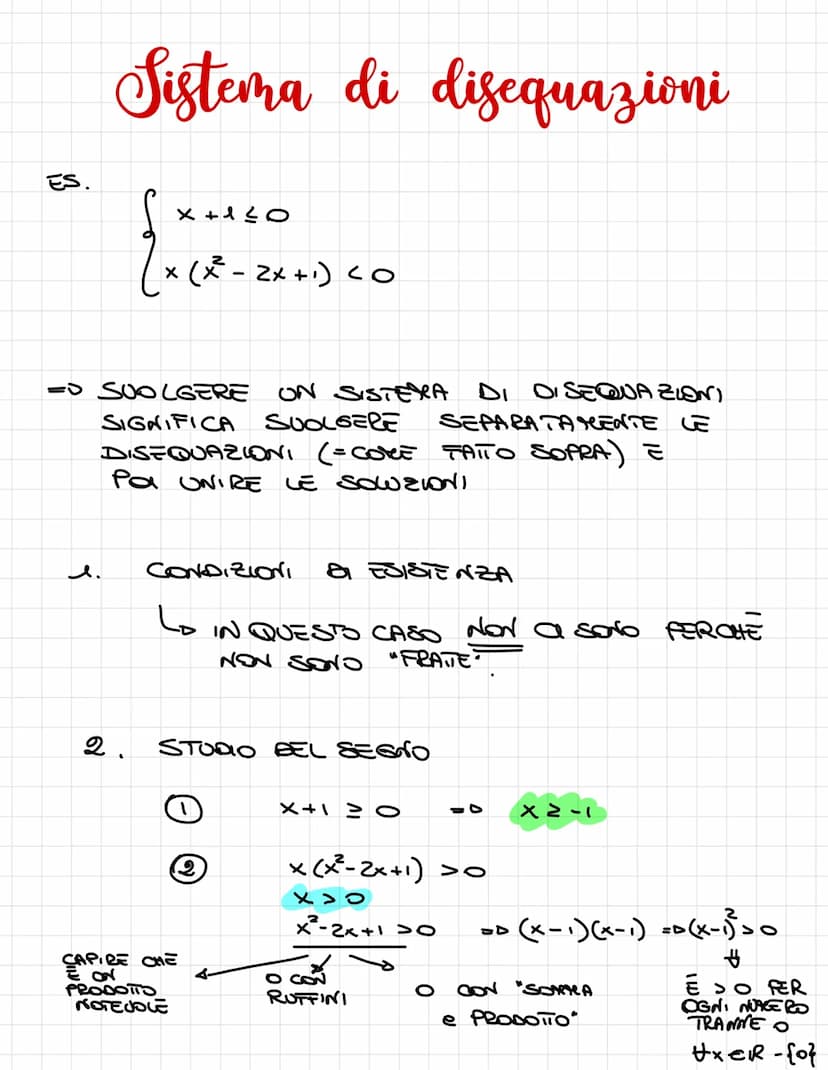 Sistema di disequazioni
ES.
{ x + 1 ≤ 0
x (x² - 2x + 1) < 0
=> SVOLGERE UN SISTEMA DI DISEQUAZIONI
SIGNIFICA SVOLGERE SEPARATAMENTE LE
DISEQUAZIONI (= COME FATTO SOPRA) E
POI UNIRE LE SOLUZIONI
1. CONDIZIONI DI ESISTENZA
↳ IN QUESTO CASO NON CI SONO PERCHÈ
NON SONO "FRATTE".
2. STUDIO DEL SEGNO
① x+1 ≥ 0 => x ≥ -1
② x (x² - 2x + 1) > 0
x > 0
x² - 2x + 1 > 0 => (x-1)(x-1) => (x-1)² > 0
CAPIRE CHE
È UN
PRODOTTO
NOTEVOLE
O CON
RUFFINI
O CON "SOMMA
e PRODOTTO"
È > 0 PER
OGNI NUMERO
TRANNE 0
∀x ∈ R - {0}